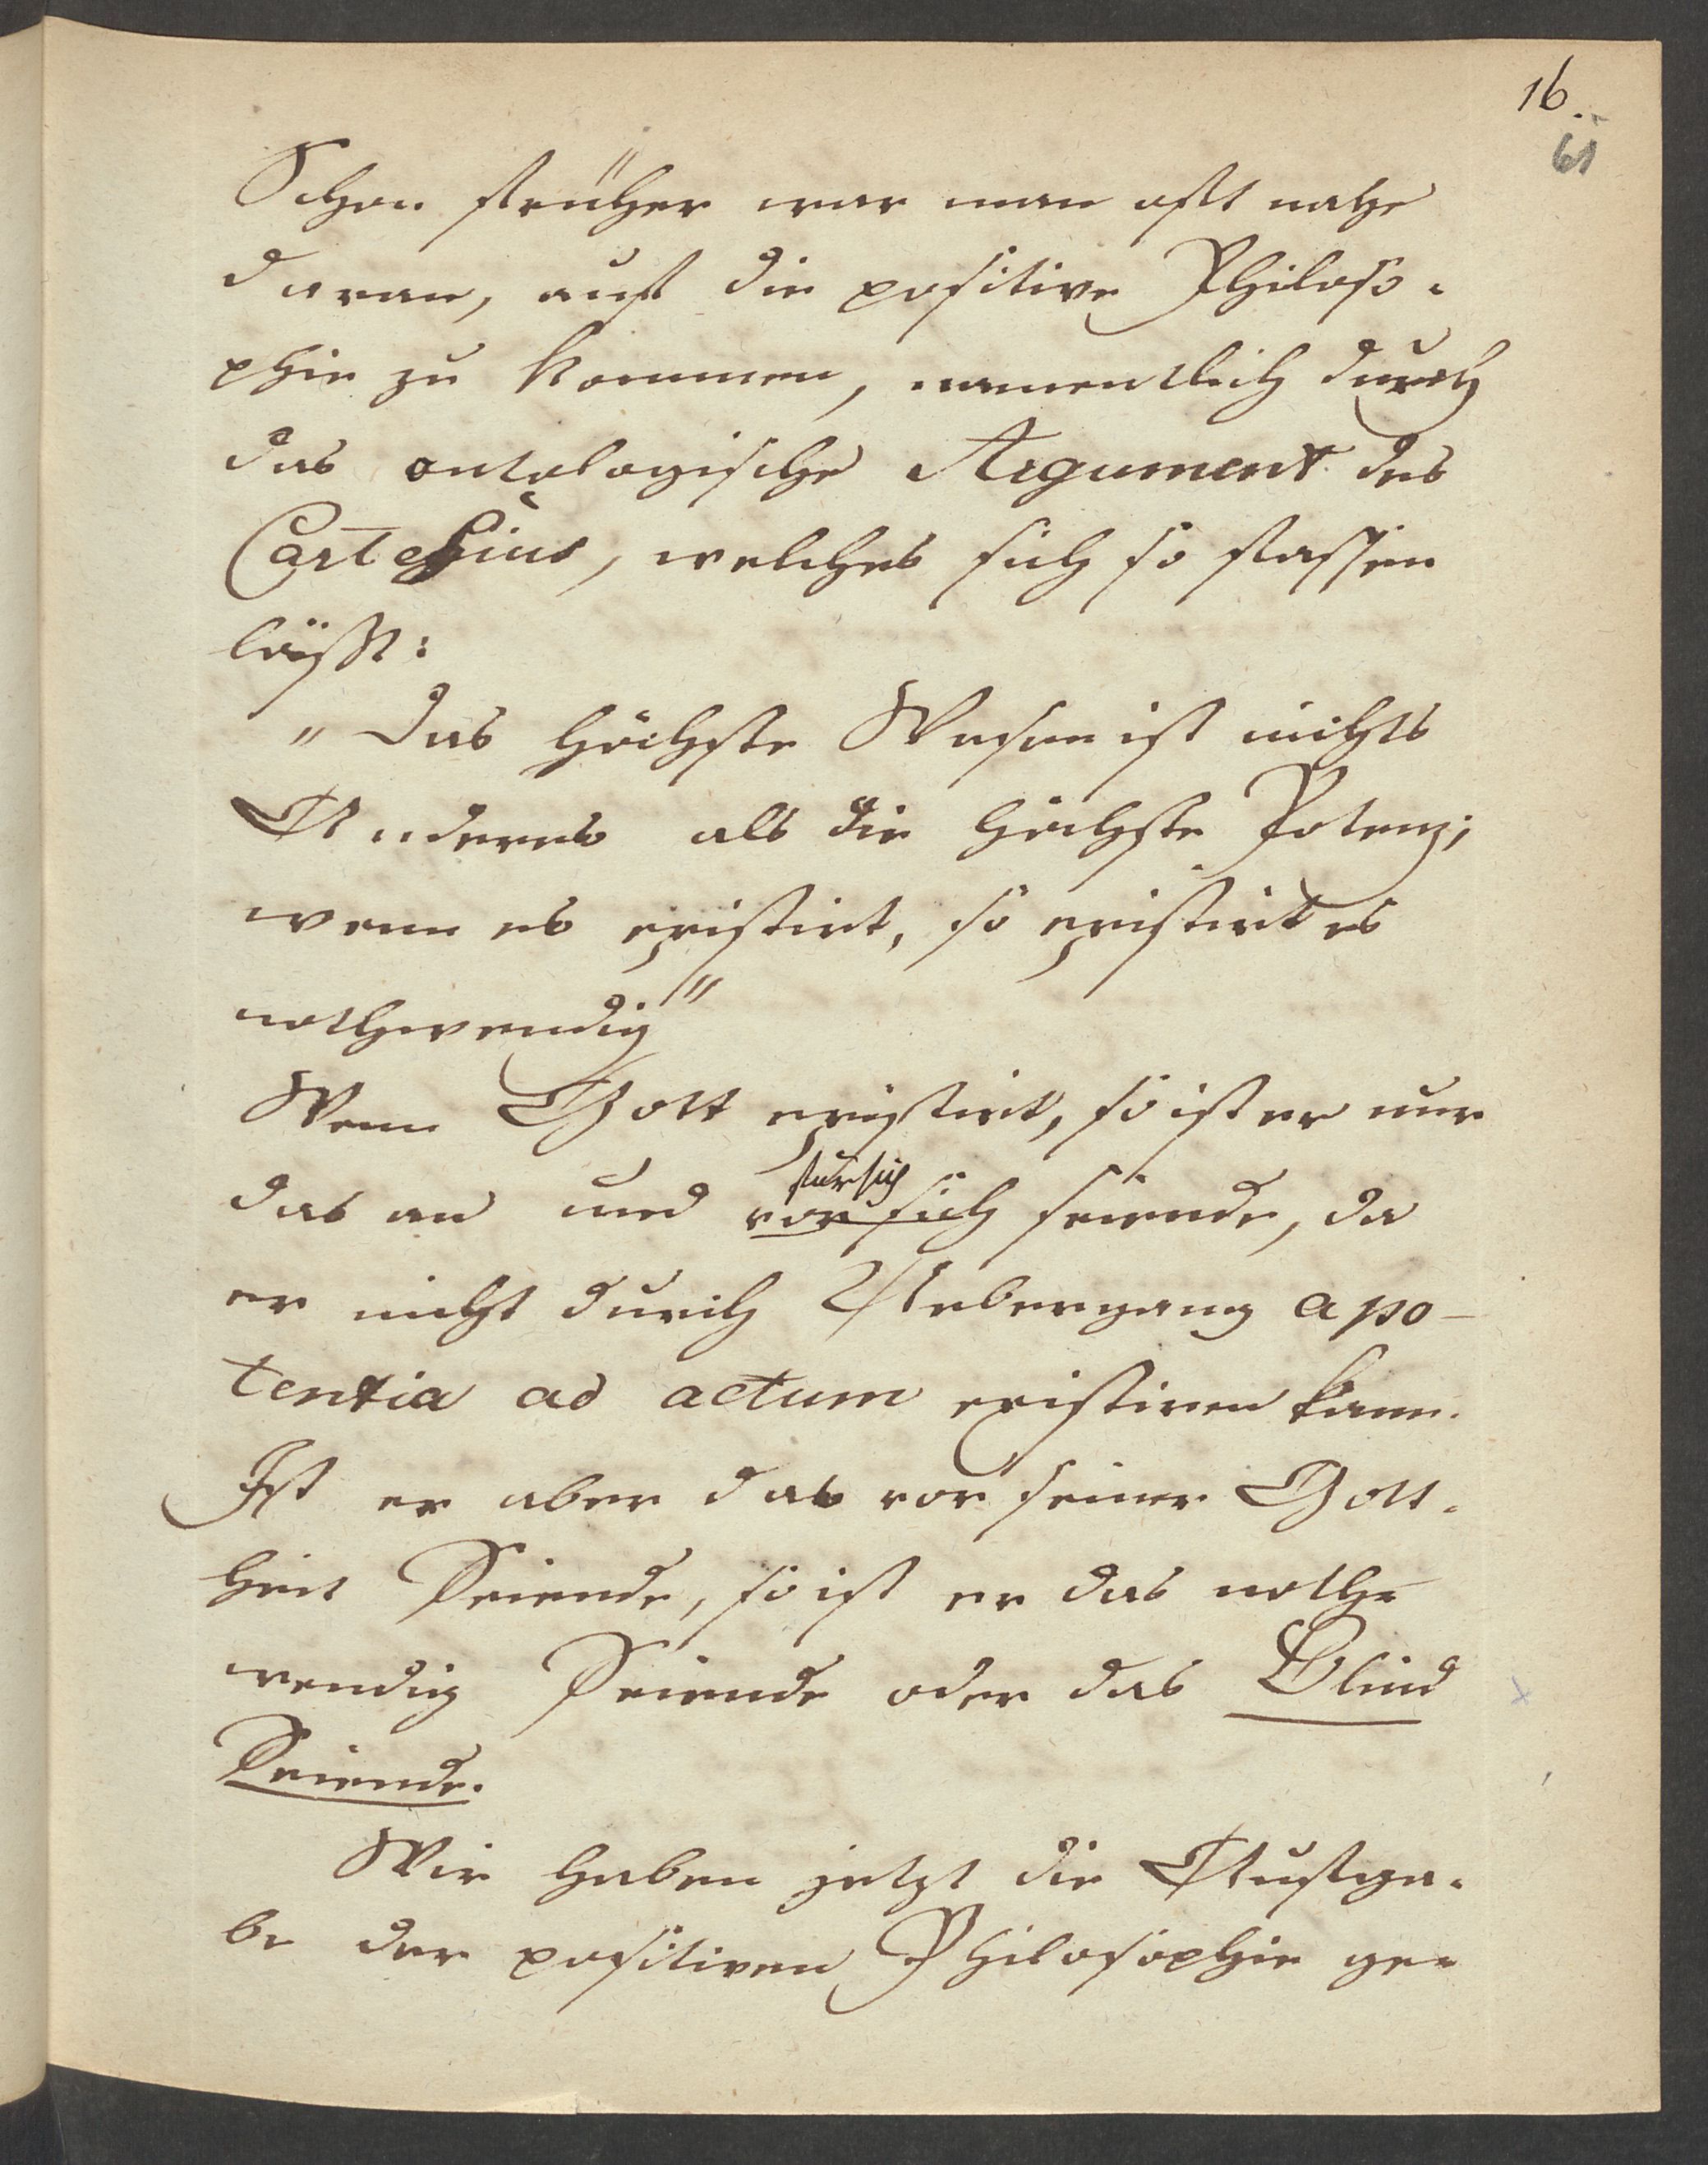 16.
61
Schon früher war man oft nahe
daran, auf die positive Philoso-
phie zu kommen, namentlich durch
das ontologische Argument des
Cartesius, welches sich so fassen
läßt:
„Das höchste Wesen ist nichts
Anderes als die höchste Potenz;
wenn es existirt, so existirt es
nothwendig"
Wenn Gott existirt, so ist er nur
fürsich
das an und vor sich seiende, da
er nicht durch Uebergang a po-
tentia ad actum existiren kann.
Ist er aber das vor seiner Gott-
heit Seiende, so ist er das noth-
wendig Seiende oder das Blind
Seiende.
Wir haben jetzt die Aufga-
be der positiven Philosophie ge-